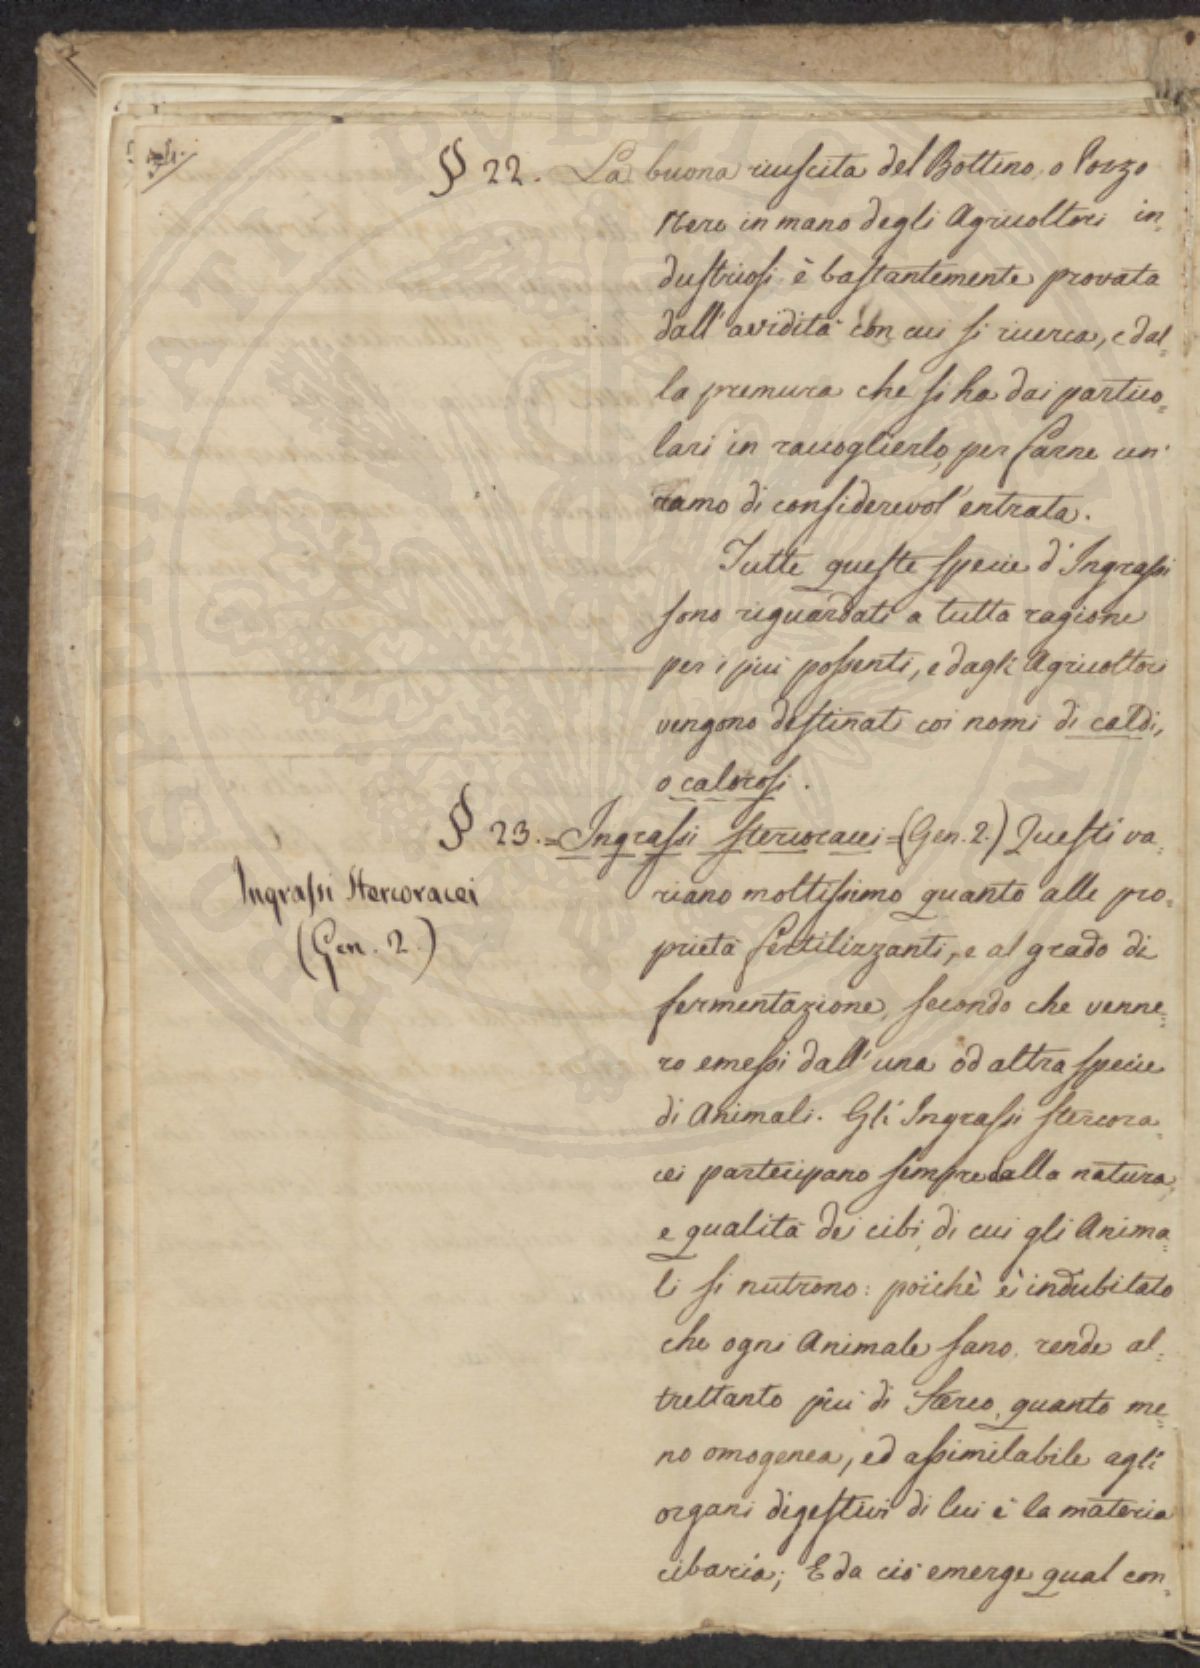 § 22. La buona riuscita del Bottino, o Pozzo
Nero in mano degli Agricoltori in=
dustriosi è bastantemente provata
dall'avidità con cui si ricerca, e dal=
la premura che si ha dai partico=
lari in raccoglierlo, per farne un'
ramo di considerevol'entrata.
Tutte queste specie d'Ingrassi
sono riguardati a tutta ragione
per i piu possenti, e dagli Agricoltori
vengono destinati coi nomi di caldi,
o calorosi.
§ 23. = Ingrassi stercoracei = (Gen. 2.) Questi va=
riano moltissimo quanto alle pro=
prietà fertilizzanti, e al grado di
fermentazione, secondo che venne=
ro emessi dall'una od altra specie
di Animali. Gli Ingrassi stercora=
cei partecipano sempre dalla natura,
e qualità dei cibi, di cui gli Anima=
li si nutrono: poichè è indubitato
che ogni Animale sano, rende al=
trettanto più di Sterco, quanto me=
no omogenea, ed assimilabile agli
organi digestivi di lui è la materia
cibaria; E da ciò emerge qual con=
Ingrassi Stercoracei
(Gen. 2.)